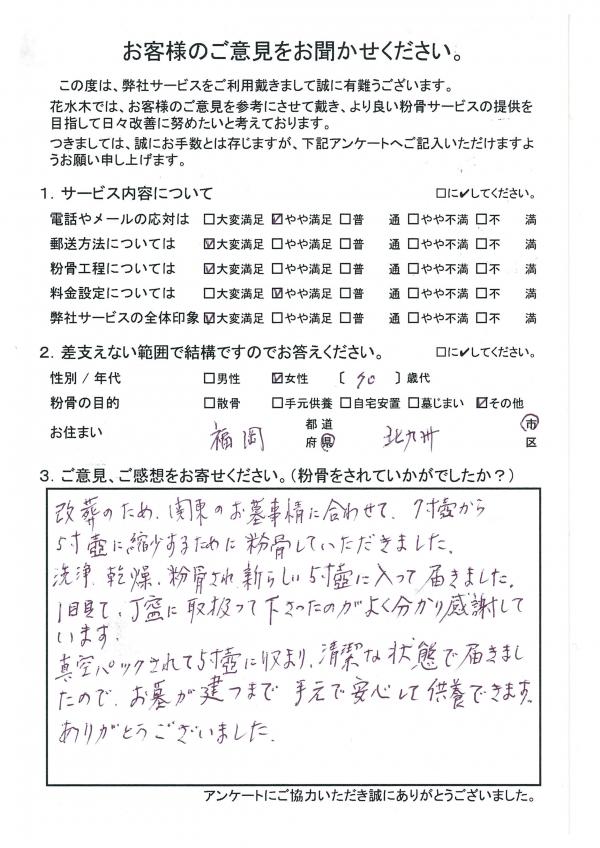 お客様のご意見をお聞かせください。
この度は、弊社サービスをご利用戴きまして誠に有難うございます。
花水木では、お客様のご意見を参考にさせて戴き、より良い粉骨サービスの提供を
目指して日々改善に努めたいと考えております。
つきましては、誠にお手数とは存じますが、下記アンケートへご記入いただけますよ
うお願い申し上げます。
1. サービス内容について □に✔してください。
電話やメールの応対は □大変満足 ☑やや満足 □普 通 □やや不満 □不 満
郵送方法については ☑大変満足 □やや満足 □普 通 □やや不満 □不 満
粉骨工程については ☑大変満足 □やや満足 □普 通 □やや不満 □不 満
料金設定については □大変満足 ☑やや満足 □普 通 □やや不満 □不 満
弊社サービスの全体印象 ☑大変満足 □やや満足 □普 通 □やや不満 □不 満
2. 差支えない範囲で結構ですのでお答えください。 □に✔してください。
性別/年代 □男性 ☑女性 〔 〕歳代
粉骨の目的 □散骨 □手元供養 □自宅安置 □墓じまい ☑その他
お住まい 福岡 都道府県 北九州 市区
3. ご意見、ご感想をお寄せください。(粉骨をされていかがでしたか?)
改葬のため、関東のお墓事情に合わせて、7寸壺から
5寸壺に縮少するために粉骨していただきました。
洗浄、乾燥、粉骨され新らしい5寸壺に入って届きました。
1目見て、丁寧に取扱って下さったのがよく分かり感謝して
います。
真空パックされて5寸壺に収まり、清潔な状態で届きまし
たので、お墓が建つまで手元で安心して供養できます。
ありがとうございました。
アンケートにご協力いただき誠にありがとうございました。